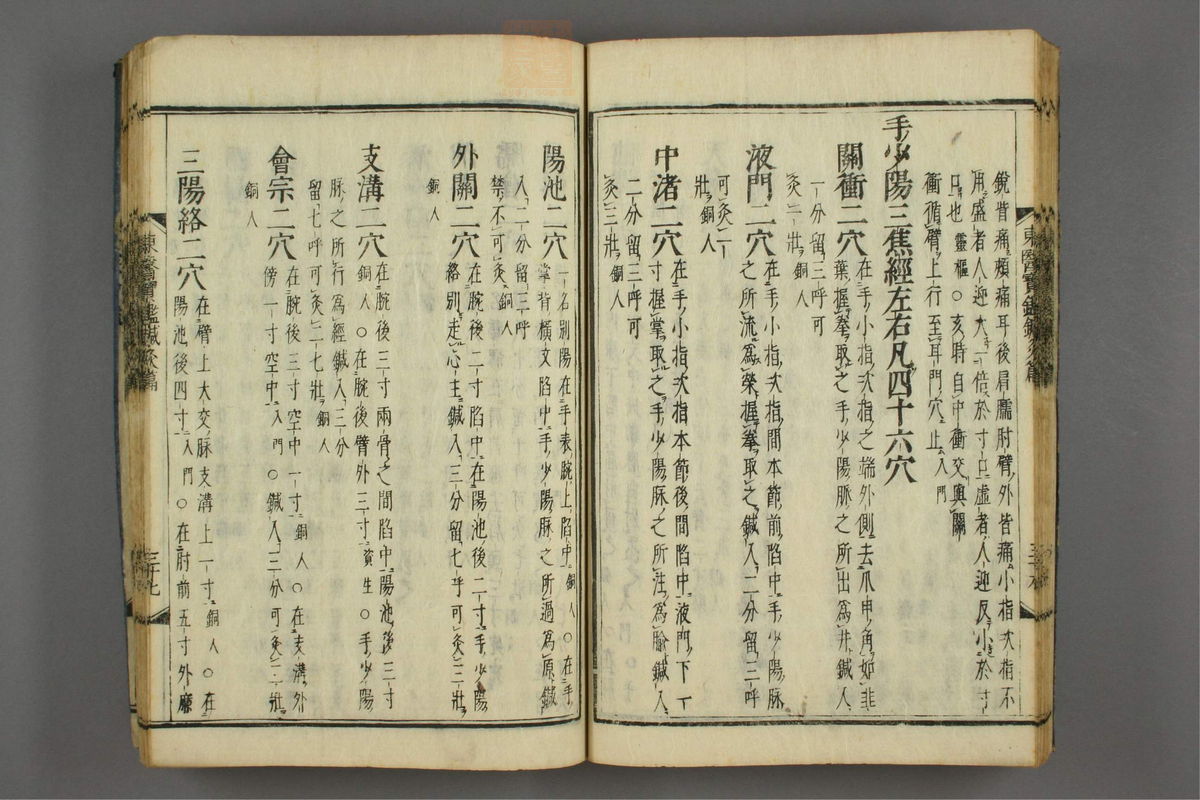 銳肯痛頰痛耳後肩臑肘臂外皆痛小指次指不
用盛者人迎大一倍於寸口虛者人迎反小於寸
口也靈樞○亥時自中衝交與關
衝循臂上行至耳門穴止入門
手少陽三焦經左右凡四十六穴
關衝二穴在手小指次指之端外側去爪甲角如韭
葉握拳取之手少陽脉之所出爲井鍼入
一分留三呼可
灸一壯銅人
液門二穴在手小指次指間本節前陷中手少陽脉
之所流爲榮握拳取之鍼入二分留三呼
可灸一
壯銅人
中渚二穴在手小指次指本節後間陷中液門下一
寸握掌取之手少陽脉之所注爲腧鍼入
二分留三呼可
灸三壯銅人
陽池二穴一名別陽在手表腕上陷中銅人○在手
掌背橫文陷中手少陽脉之所過爲原鍼
入二分留三呼
禁不可灸銅人
外關二穴在腕後二寸陷中在陽池後二寸手少陽
絡別走心主鍼入三分留七呼可灸三壯
銅人
支溝二穴在腕後三寸兩骨之間陷中陽池後三寸
銅人○在腕後臂外三寸資生○手少陽
脉之所行爲經鍼入三分
留七呼可灸二七壯銅人
會宗二穴在腕後三寸空中一寸銅人○在支溝外
傍一寸空中入門○鍼入三分可灸三壯
銅人
三陽絡二穴在臂上大交脉支溝上一寸銅人○在
陽池後四寸入門○在肘前五寸外廉
東醫寶鑑鍼灸篇
東醫寶鑑鍼灸篇
三十七